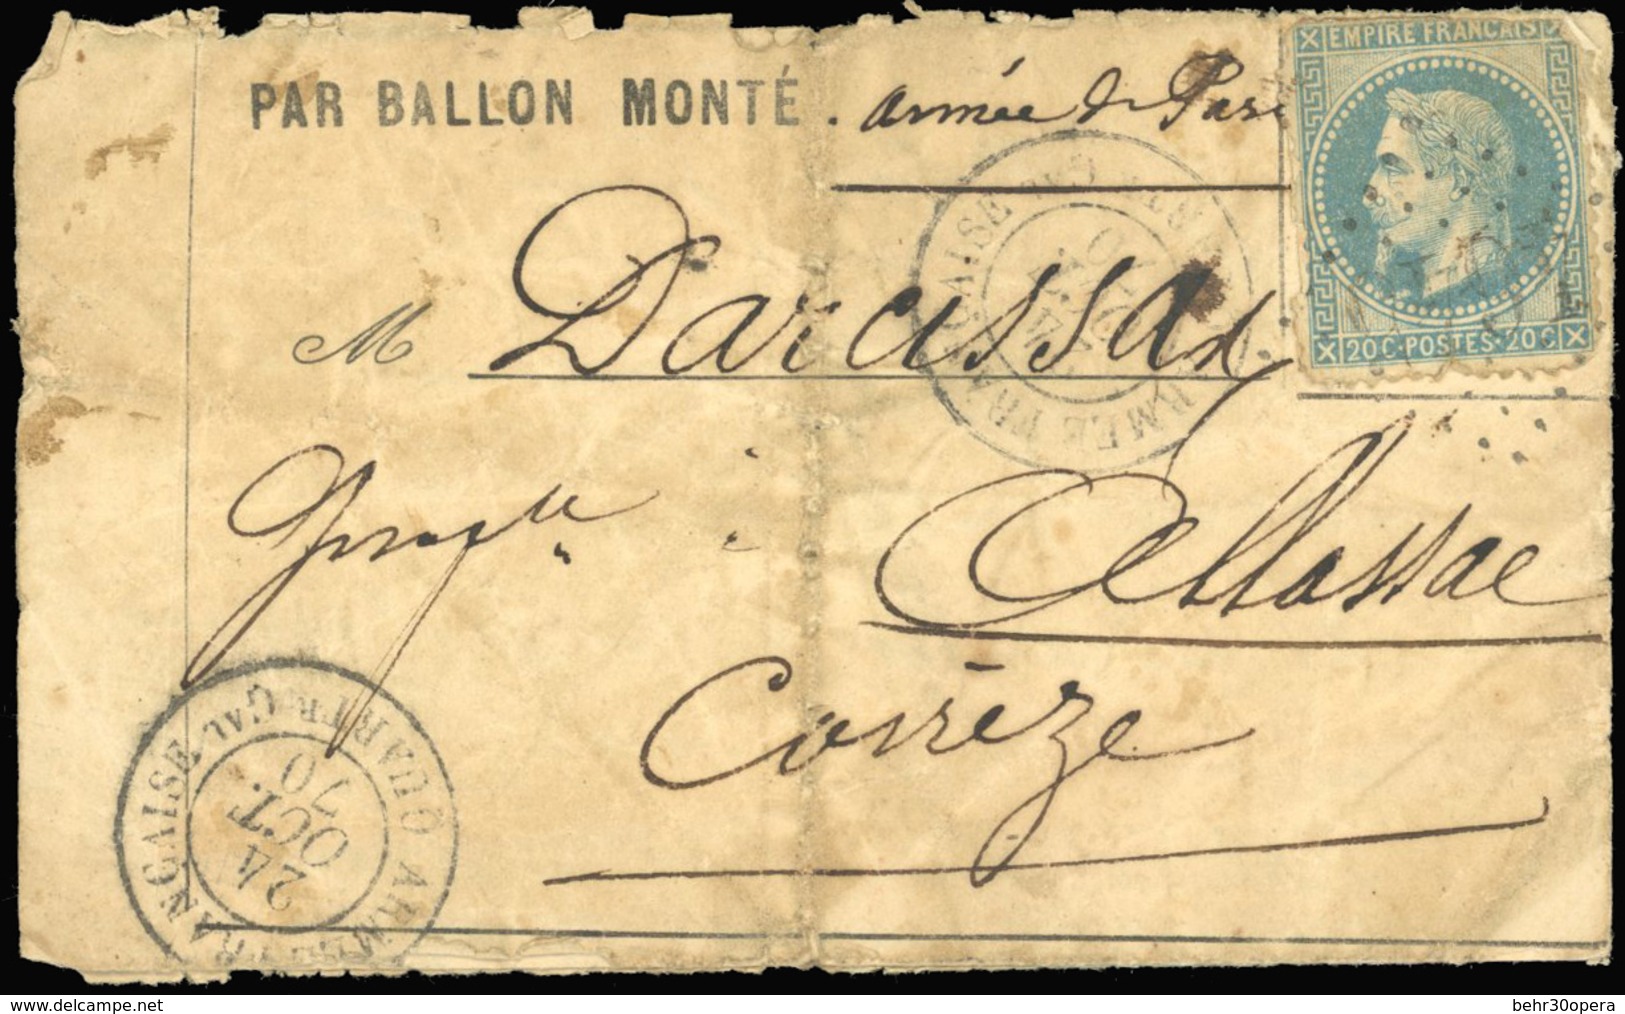 PAR BALLON MONTÉ. armée de Paris
EMPIRE FRANCAIS
20 C · POSTES · 20 C
M Darassax
à Allassac
Corrèze
ARMEE FRANCAISE
QUARTER GAL
24
OCT.
70
www.delcampe.net
behr30opera